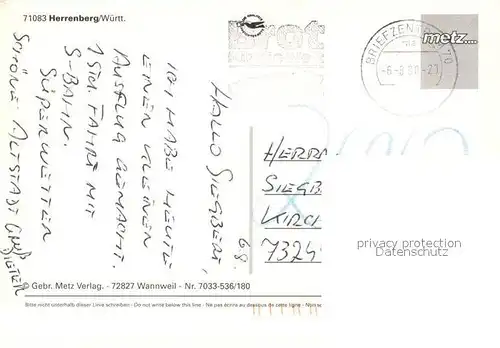 71083 Herrenberg/Württ.
Brot
metz....
BRIEFZENTRUM 70
-6.-8.98-21
6.8.
HALLO SIEGBERT,
ICH HABE HEUTE
EINEN KLEINEN
AUSFLUG GEMACHT.
1 STD. FAHRT MIT
S-BAHN.
SUPERWETTER
SCHÖNE ALTSTADT GRUß
DIETER
HERRN
SIEGB
KIRCH
7324
privacy protection
Datenschutz
© Gebr. Metz Verlag. - 72827 Wannweil - Nr. 7033-536/180
Bitte nicht unterhalb dieser Linie schreiben - Do not write below this line - Ne pas écrire au dessous de cette ligne - Non